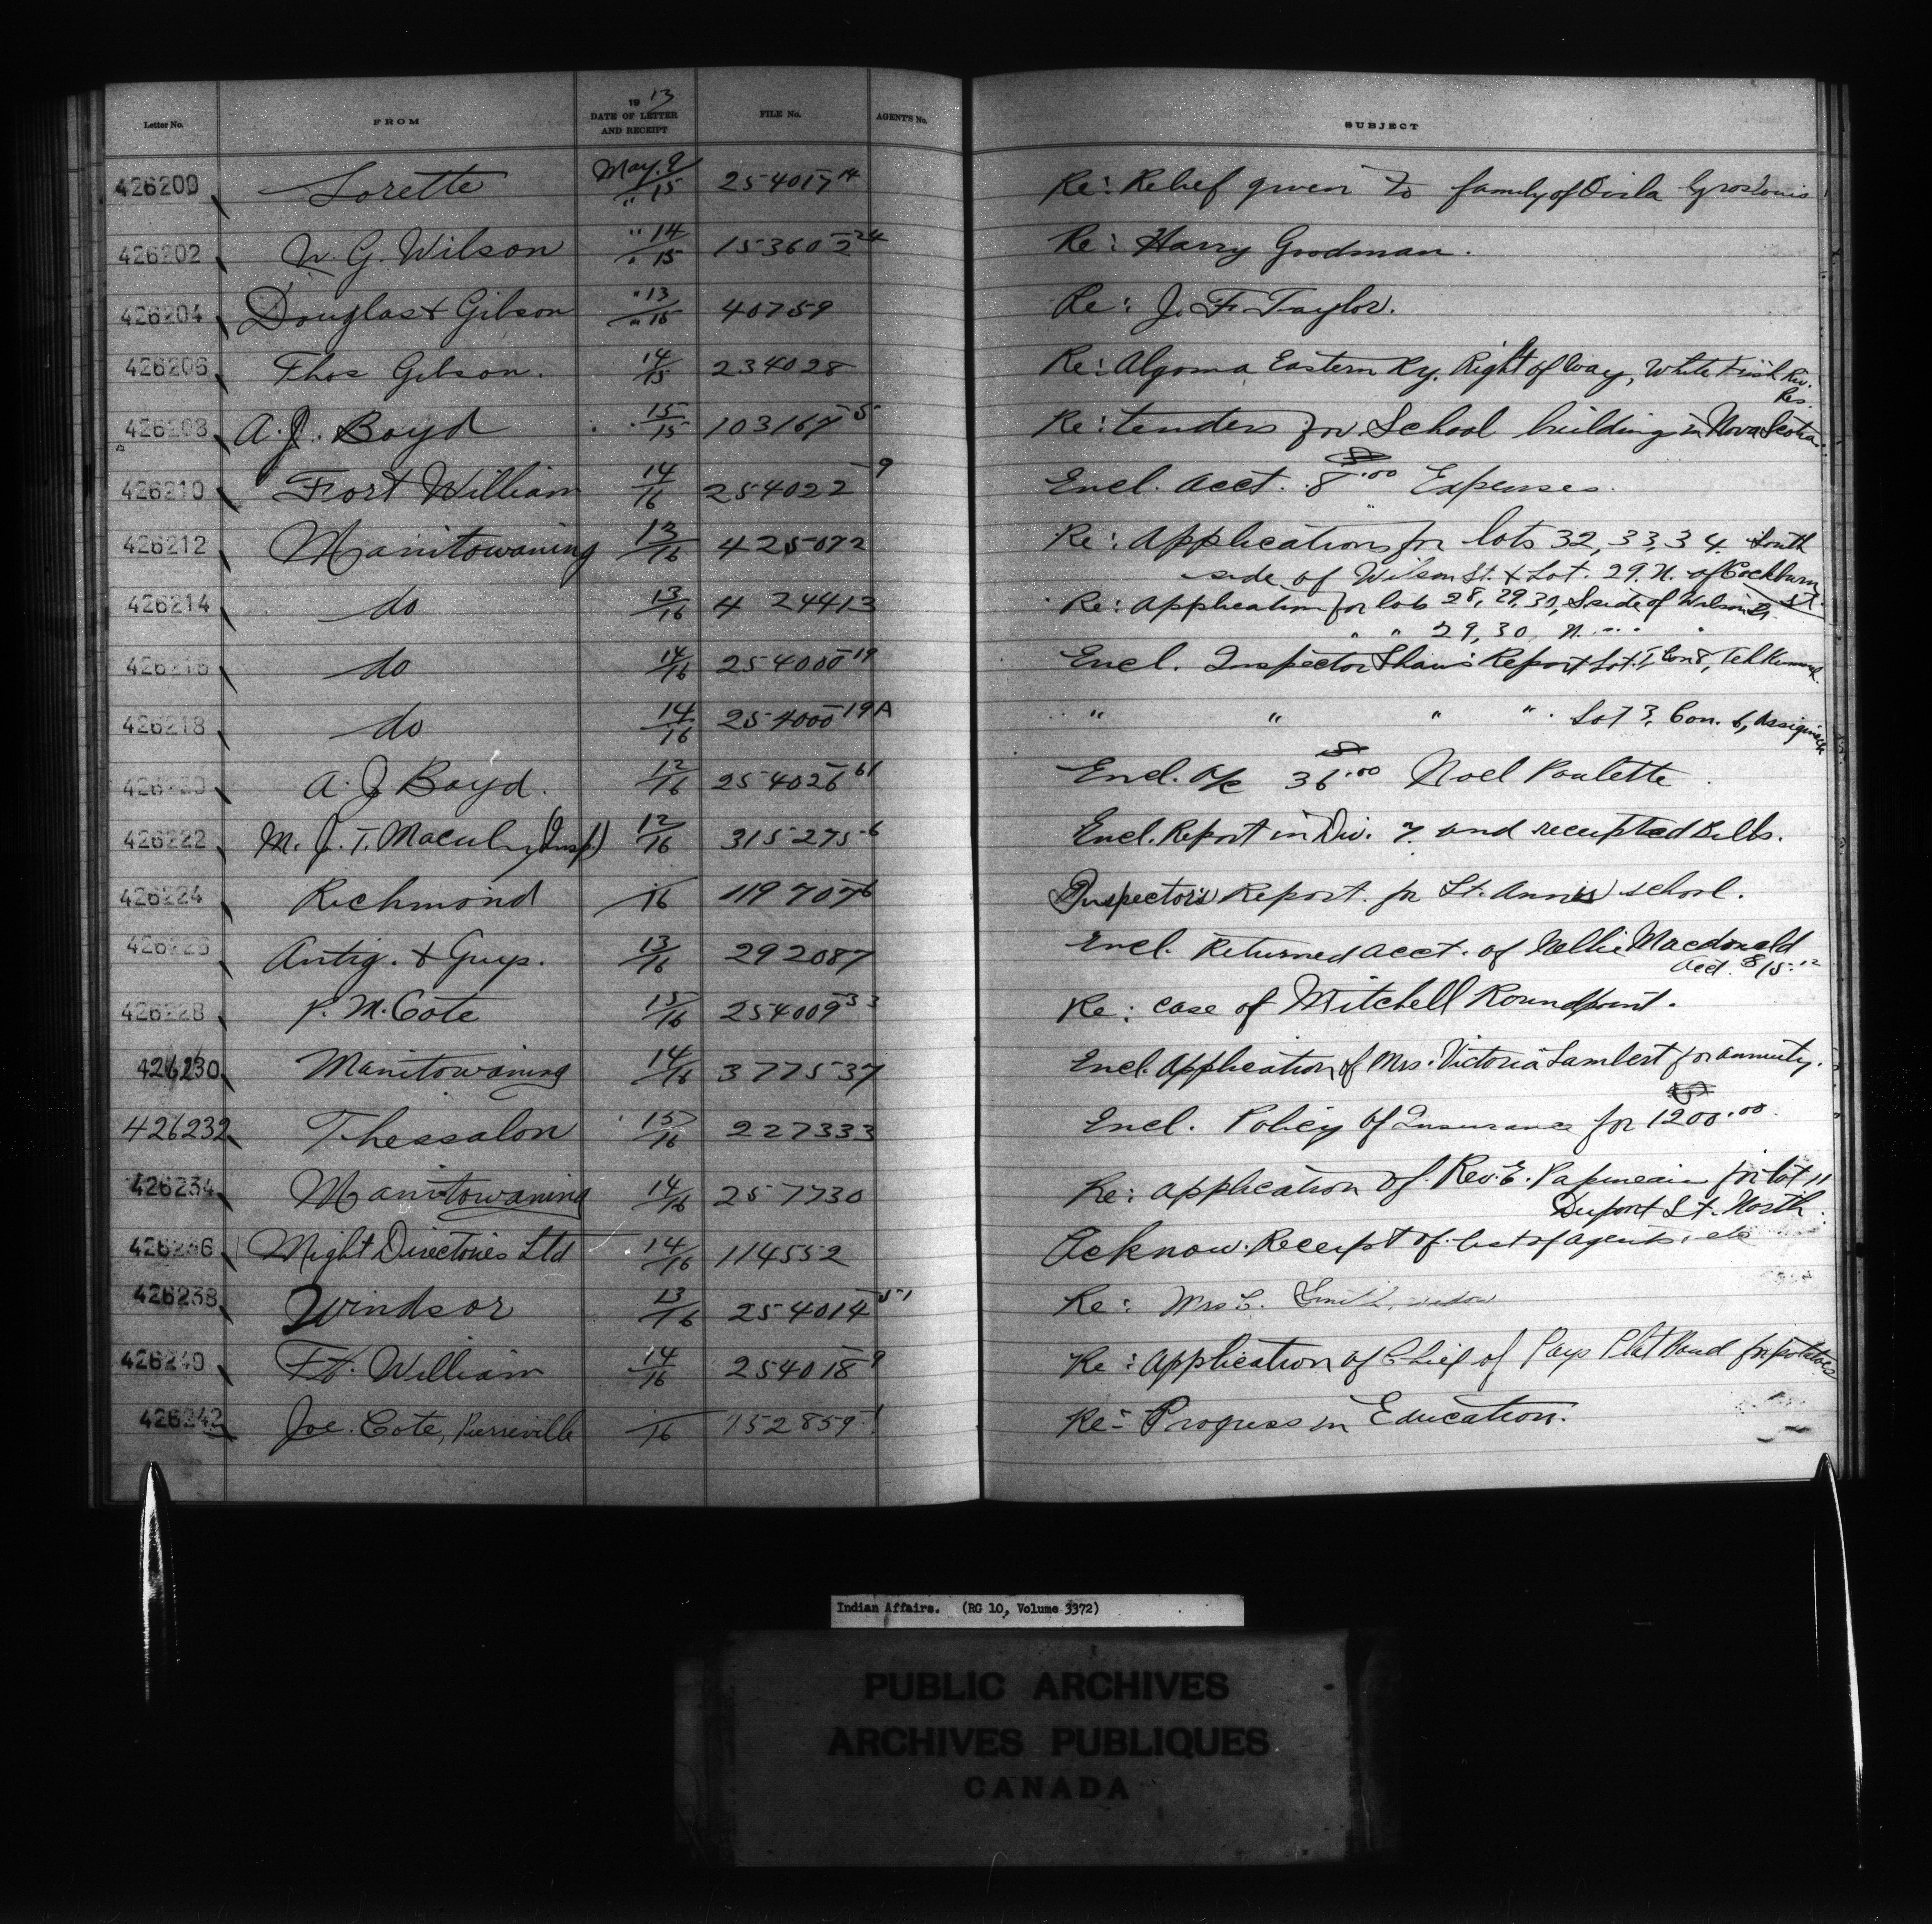 Letter No. FROM 1913 DATE OF LETTER AND RECEIPT FILE No. AGENT'S No. SUBJECT
426200 Lorette May. 9/" 15 254017-14 Re: Relief given to family of Groslouis
426202 W. G. Wilson " 14/" 15 153602-24 Re: Harry Goodman.
426204 Douglas & Gibson " 13/" 15 40759 Re: J. F. Taylor.
426206 Thos Gibson. 14/15 234028 Re: Algoma Eastern Ry. Right of Way, White Fish Riv. Res.
426208 A. J. Boyd 15/15 103167-5 Re: tenders for School building in Nova Scotia.
426210 Fort William 14/16 254022-9 Encl. acct. $8.00 Expenses.
426212 Manitowaning 13/16 425072 Re: Applications for lots 32, 33, 34. South
side of Wilson St. & Lot. 29. N. of Cockburn St.
426214 do 13/16 424413 Re: Application for lots 28, 29, 30, S side of Wilson St.
" " 29, 30 N. " " "
426216 do 14/16 254000-19 Encl. Inspector Shaw's Report Lot. 1, Con 8, Tehkummah.
426218 do 14/16 254000-19A " " " " . Lot 3, Con. 6, Assiginack
426220 A. J. Boyd. 12/16 254026-61 Encl. a/c $36.00 Noel Paulette.
426222 M. J. T. Macul (Insp.) 12/16 315275-6 Encl. Report in Div. 7. and receipted Bills.
426224 Richmond /16 119707-6 Inspector's Report. for St. Anne's school.
426226 Antig. & Guys. 13/16 292087 Encl. Returned acct. of Nellie Macdonald
Acct. $15.12
426228 P. M. Cote 15/16 254009-33 Re: case of Mitchell Roundpoint.
426230 Manitowaning 14/16 377537 Encl. Application of Mrs. Victoria Lambert for annuity.
426232 Thessalon 15/16 227333 Encl. Policy of Insurance for $1200.00.
426234 Manitowaning 14/16 257730 Re: application of Rev. E. Papineau for lot 11
Dupont St. North.
426236 Might Directories Ltd 14/16 114552 Acknow. Receipt of list of agents, etc
426238 Windsor 13/16 254014-51 Re: Mrs C. Smith, widow
426240 Ft. William 14/16 254018-9 Re: Application of Chief of Pays Plat Band for potatoes
426242 Joe. Cote, Pierreville /16 152859-1 Re- Progress in Education.
Indian Affairs. (RG 10, Volume 3372)
PUBLIC ARCHIVES
ARCHIVES PUBLIQUES
CANADA